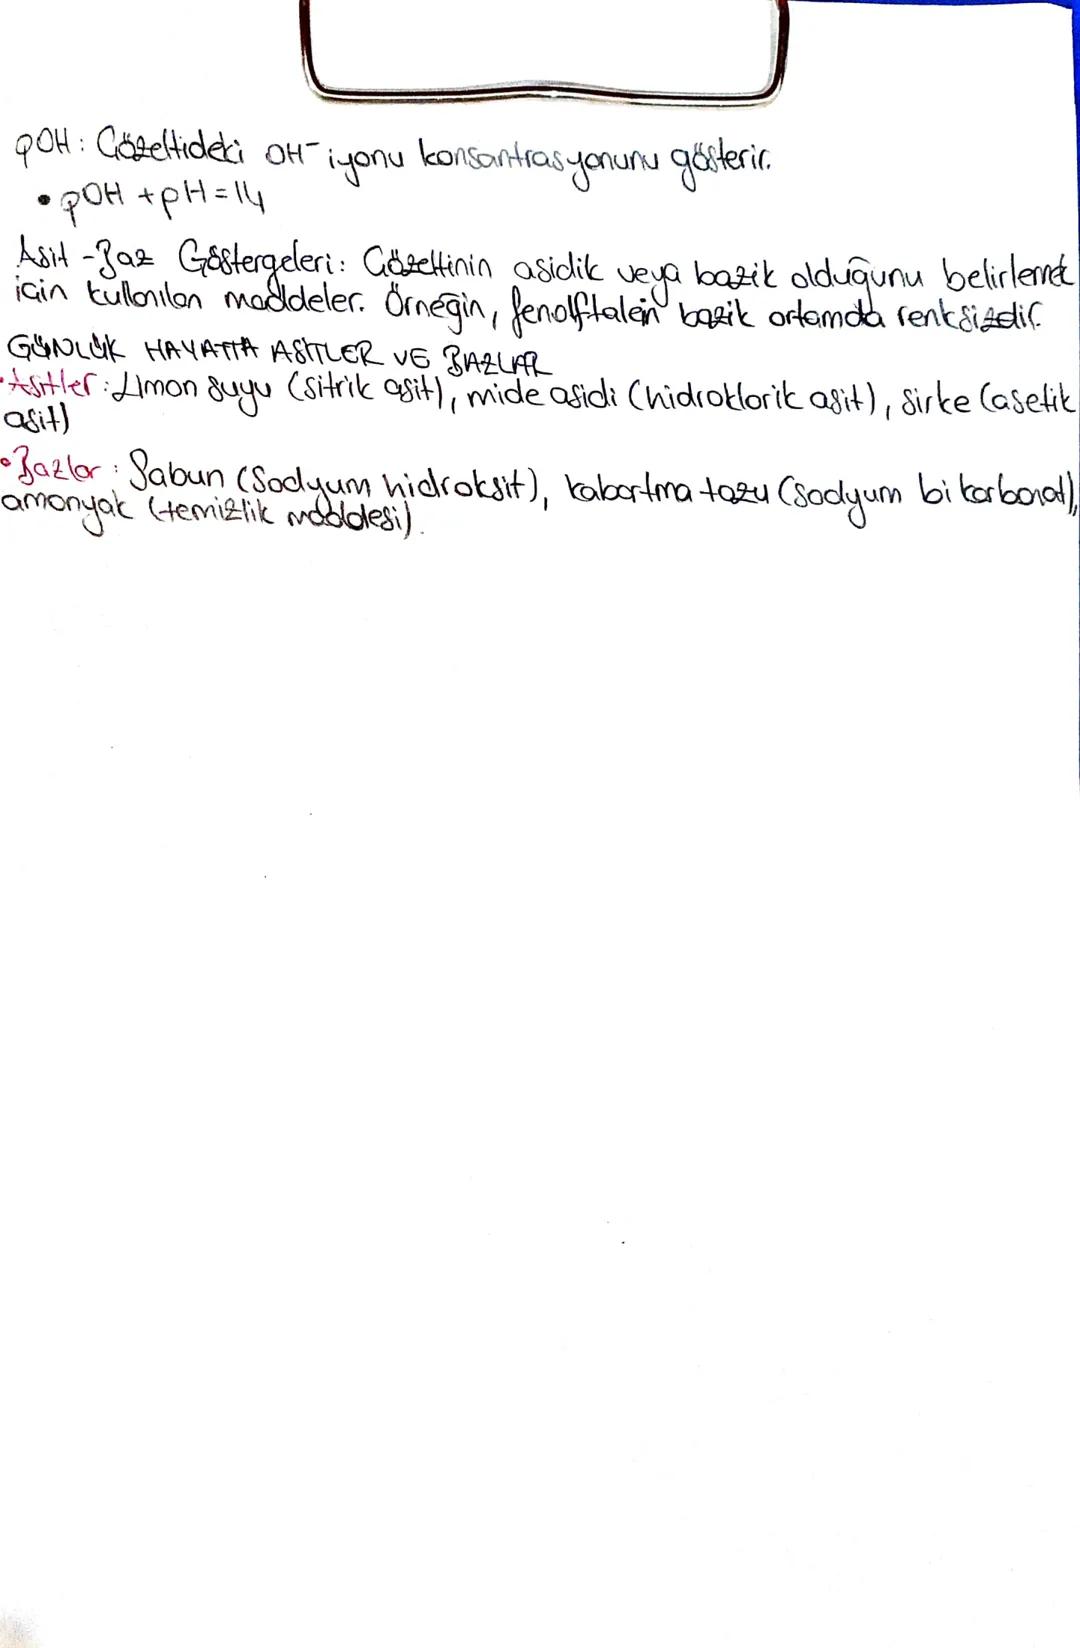 pOH: Çözeltideki OH⁻ iyonu konsantrasyonunu gösterir.
• pOH + pH = 14
Asit - Baz Göstergeleri: Çözeltinin asidik veya bazik olduğunu belirlemek
için kullanılan maddeler. Örneğin, fenolftalein bazik ortamda renksizdir.
GÜNLÜK HAYATTA ASİTLER VE BAZLAR
• Asitler: Limon suyu (sitrik asit), mide asidi (hidroklorik asit), sirke (asetik
asit)
• Bazlar: Sabun (Sodyum hidroksit), kabartma tozu (sodyum bikarbonat),
amonyak (temizlik maddesi).